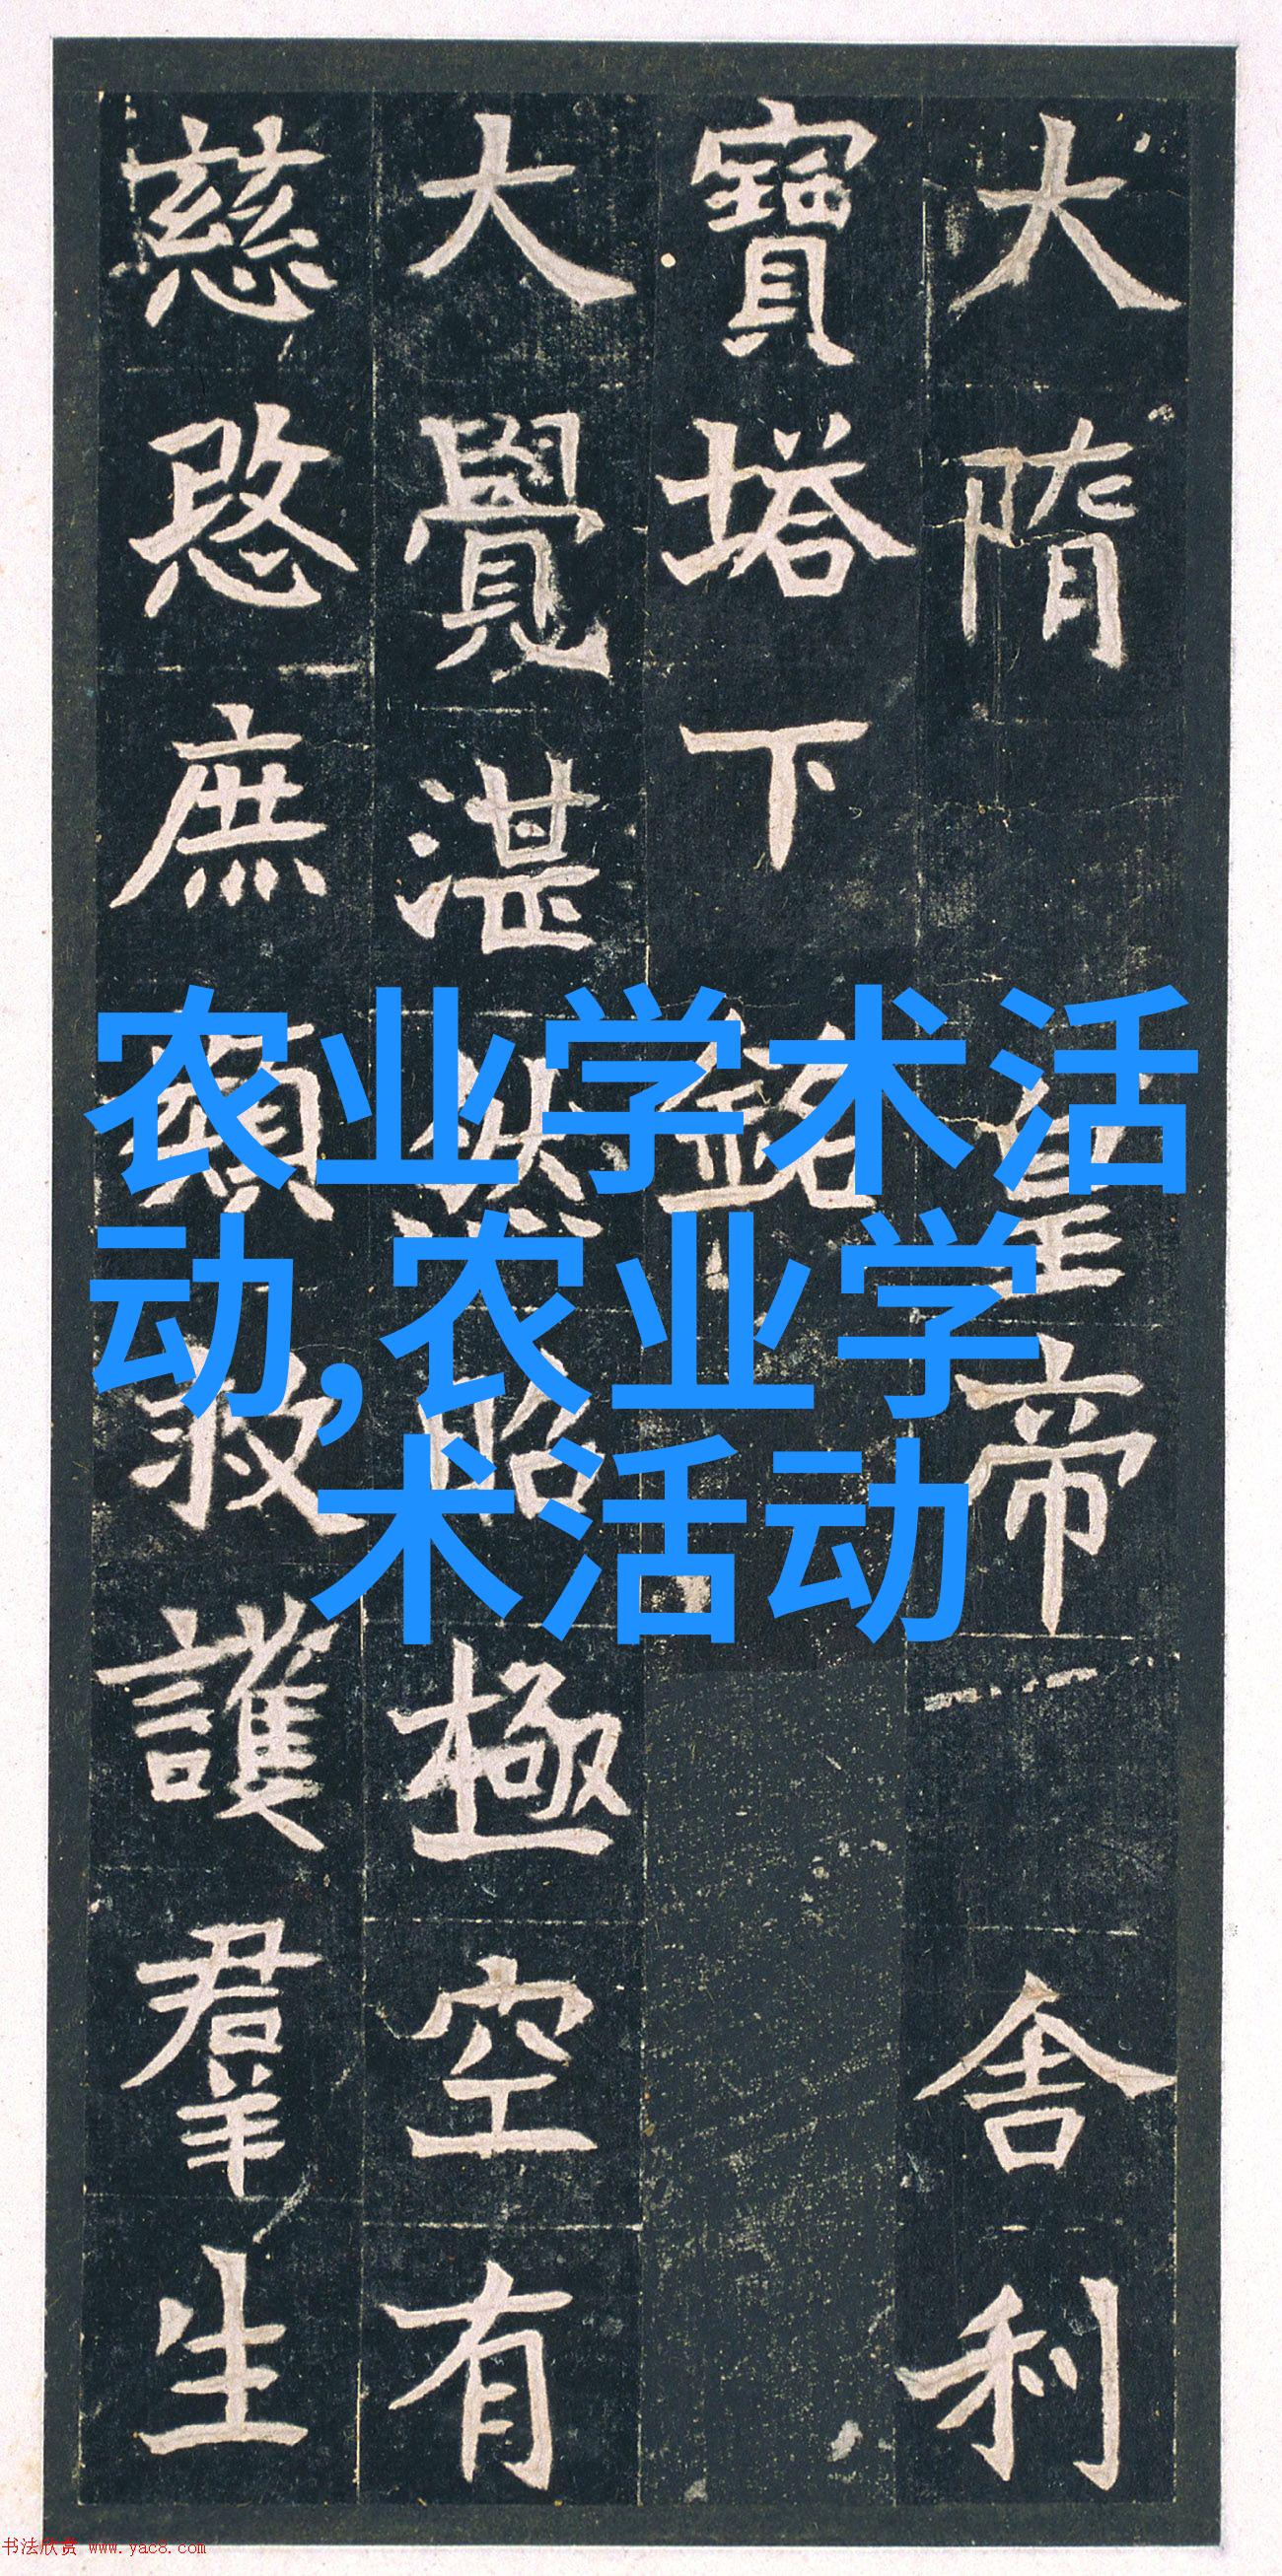 大隋皇帝舍利
寶塔下銘
大覺湛然昭極空有
慈愍庶類救護羣生
农业学术活
动,农业学
术活动
书法欣赏 www.yac8.com